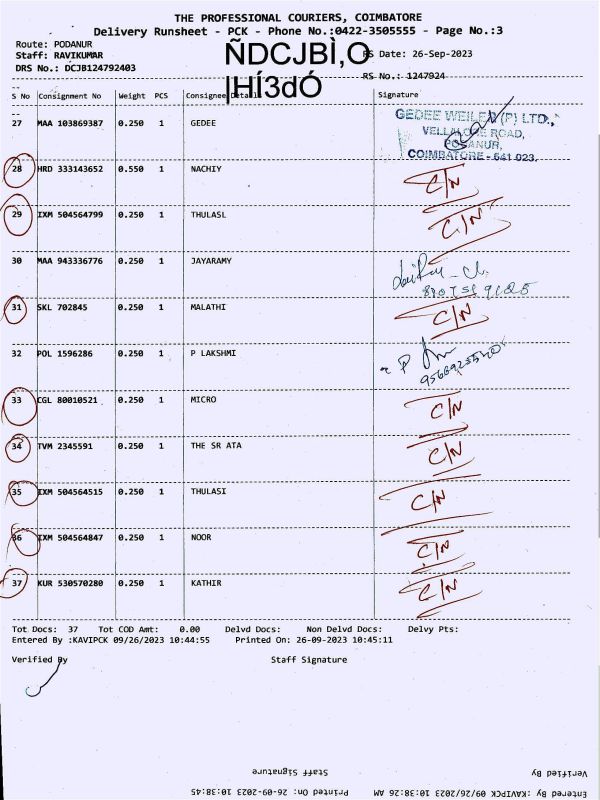 THE PROFESSIONAL COURIERS, COIMBATORE
Delivery Runsheet - PCK - Phone No.:0422-3505555 - Page No.:3
Route: PODANUR
Staff: RAVIKUMAR ÑDCJBÌ,O RS Date: 26-Sep-2023
DRS No.: DCJB124792403 |HÍ3dÓ RS No.: 1247924
S No Consignment No Weight PCS Consignee Details Signature
27 MAA 103869387 0.250 1 GEDEE
GEDEE WEILER (P) LTD.,
VELLALORE ROAD,
PODANUR,
COIMBATORE - 641 023.
28 HRD 333143652 0.550 1 NACHIY C/N
29 IXM 504564799 0.250 1 THULASL C/N
30 MAA 943336776 0.250 1 JAYARAMY
31 SKL 702845 0.250 1 MALATHI C/N
32 POL 1596286 0.250 1 P LAKSHMI P
33 CGL 80010521 0.250 1 MICRO C/N
34 TVM 2345591 0.250 1 THE SR ATA C/N
35 IXM 504564515 0.250 1 THULASI C/N
36 IXM 504564847 0.250 1 NOOR C/N
37 KUR 530570280 0.250 1 KATHIR C/N
Tot Docs: 37 Tot COD Amt: 0.00 Delvd Docs: Non Delvd Docs: Delvy Pts:
Entered By :KAVIPCK 09/26/2023 10:44:55 Printed On: 26-09-2023 10:45:11
Verified By Staff Signature
Verified By Staff Signature
Entered By :KAVIPCK 09/26/2023 10:38:26 AM Printed On: 26-09-2023 10:38:45